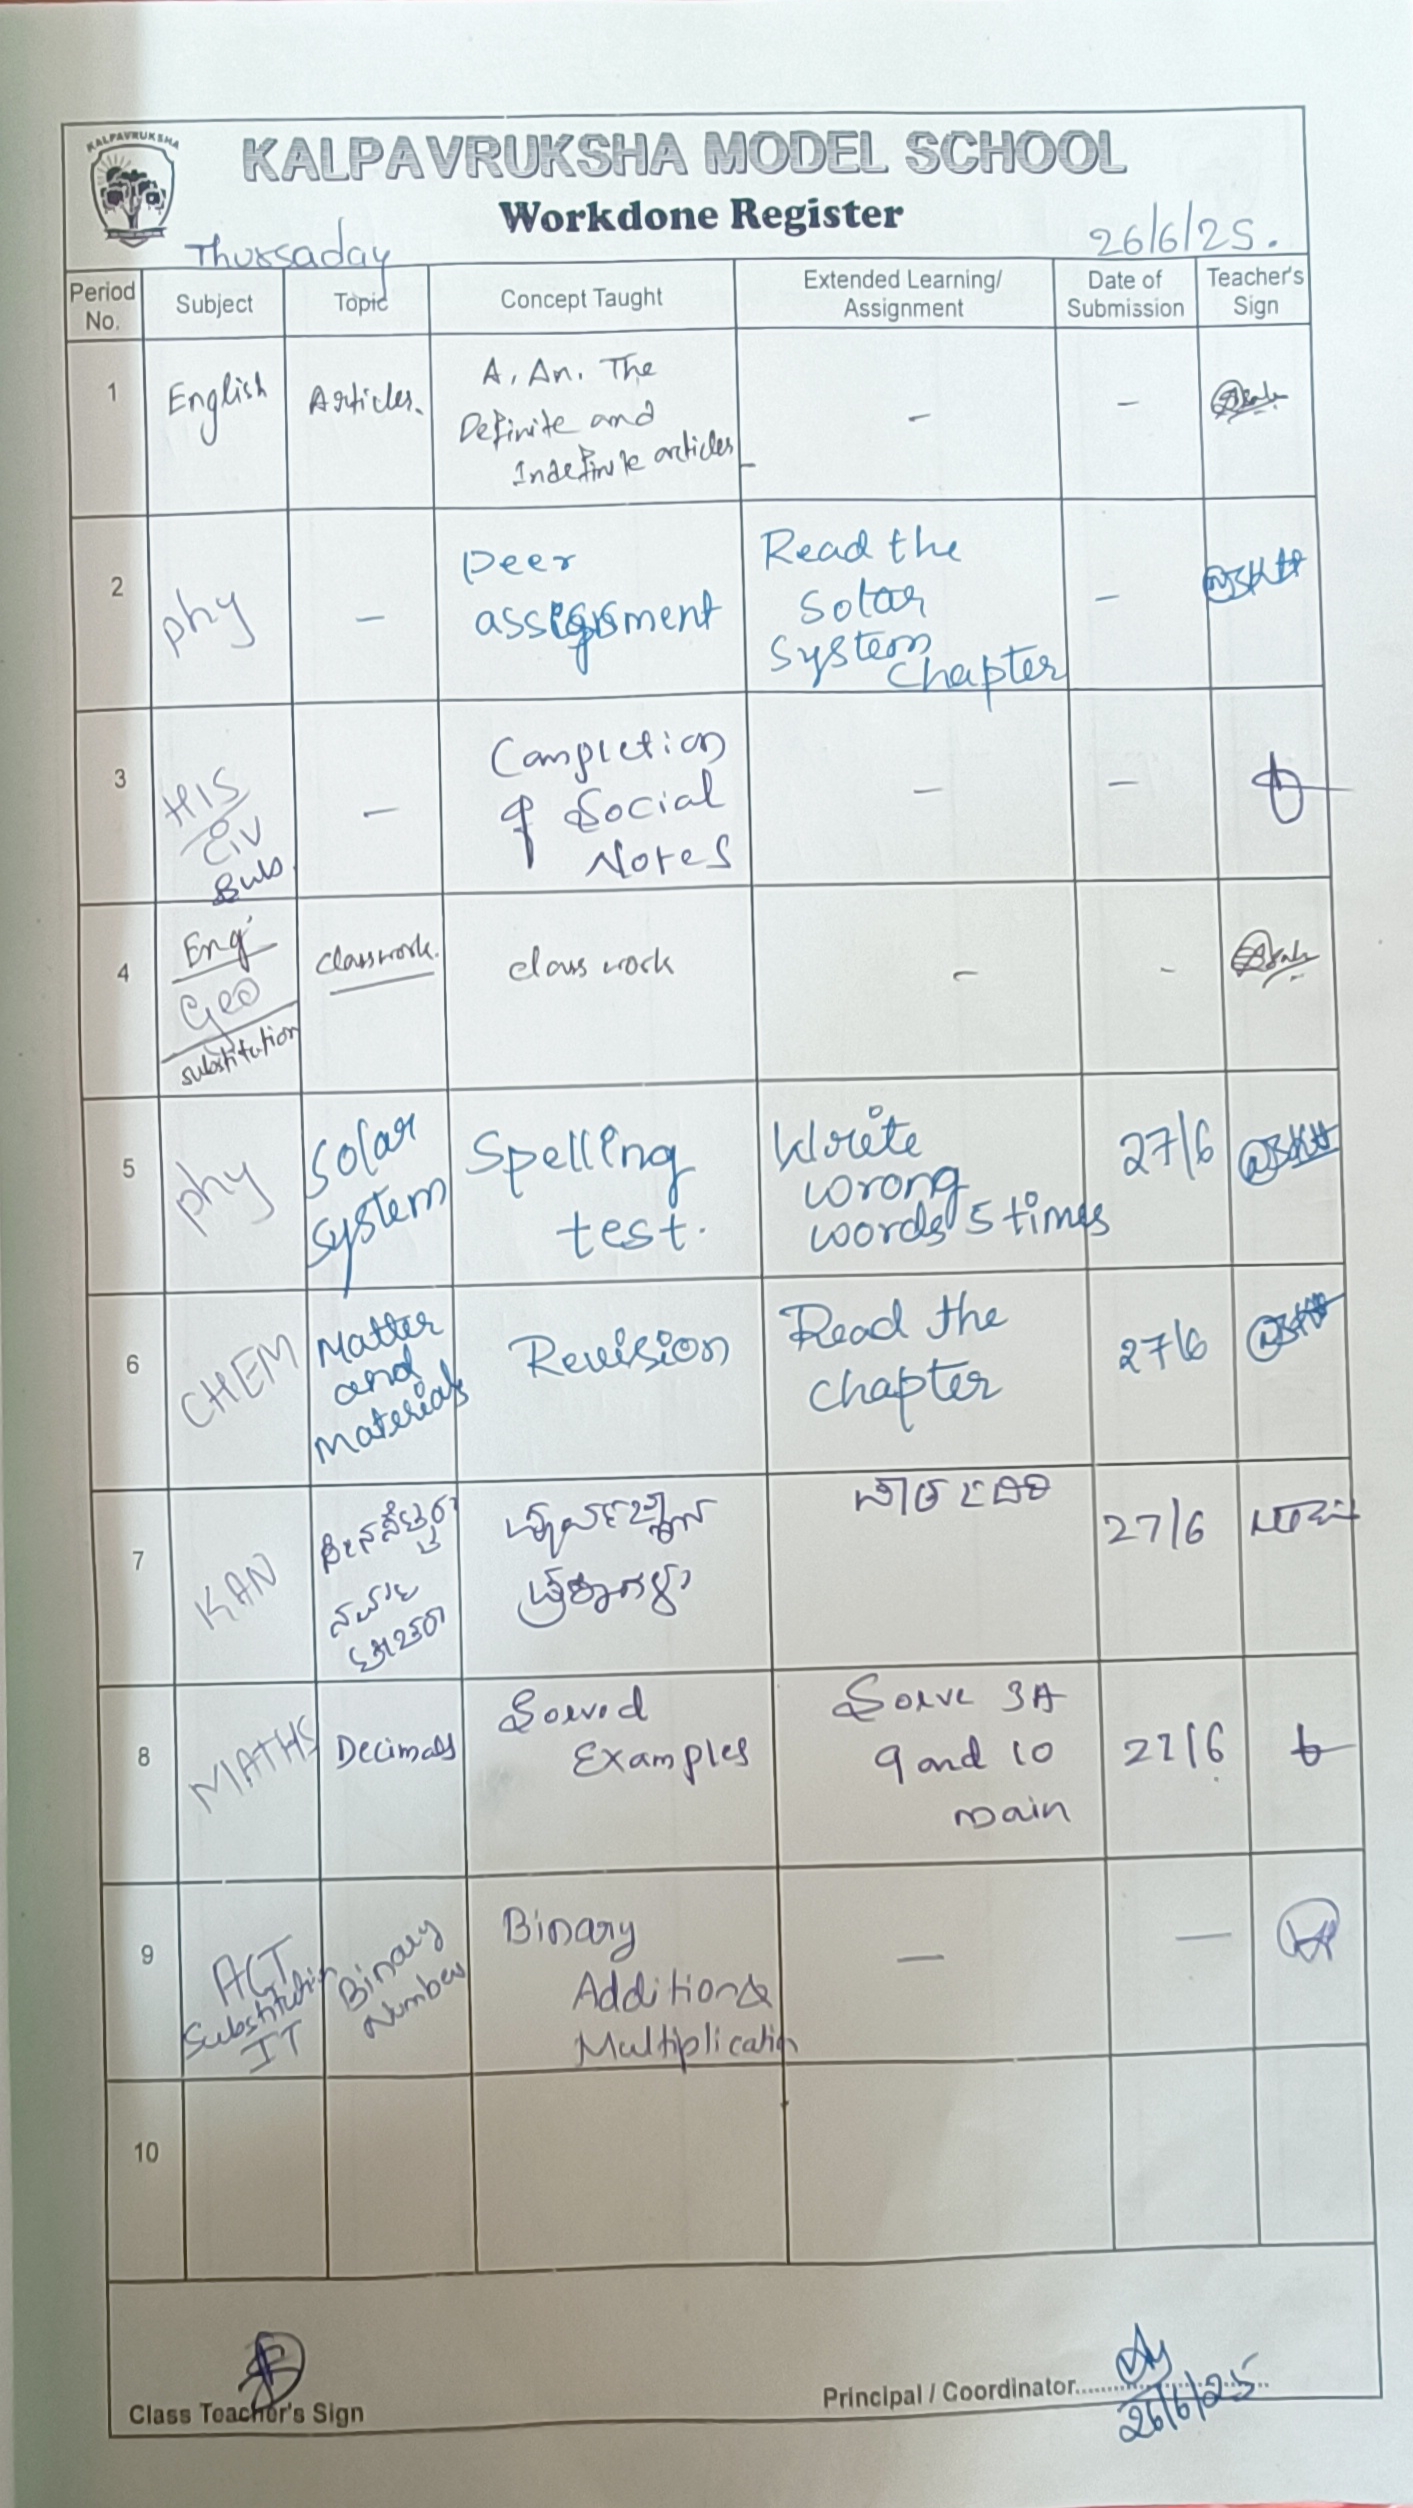 KALPAVRUKSHA
KALPAVRUKSHA MODEL SCHOOL
Workdone Register
Thursaday
26/6/25.
Period No.
Subject
Topic
Concept Taught
Extended Learning/ Assignment
Date of Submission
Teacher's Sign
1
English
Articles.
A, An, The
Definite and
Indefinite articles
-
-
2
Phy
-
Peer
assignment
Read the
Solar
System
Chapter
-
3
HIS
Civ
Sub.
-
Completion
of Social
Notes
-
-
4
Eng
Geo
substitution
Classwork.
class work
-
-
5
Phy
Solar
System
Spelling
test.
Write
wrong
words 5 times
27/6
6
CHEM
Matter
and
materials
Revision
Read the
chapter
27/6
7
KAN
27/6
8
MATHS
Decimals
Solved
Examples
Solve 3A
9 and 10
main
27/6
9
ACT
Substitution
IT
Binary
Number
Binary
Addition &
Multiplication
-
-
10
Class Teacher's Sign
Principal / Coordinator
26/6/25